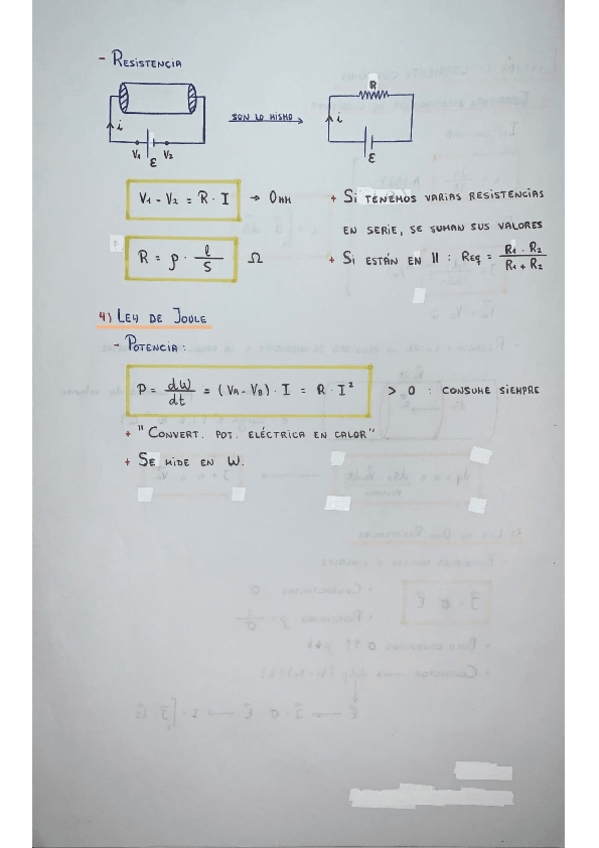 - RESISTENCIA
R
i
SON LO MISMO
i
V1 V2
ε
ε
V1 - V2 = R · I → OHM
+ SI TENEMOS VARIAS RESISTENCIAS
EN SERIE, SE SUMAN SUS VALORES
R = ρ · l/S Ω
+ SI ESTÁN EN II : Req = R1 · R2 / R1 + R2
4) LEY DE JOULE
- POTENCIA :
P = dW/dt = (VA - VB) · I = R · I² > 0 : CONSUME SIEMPRE
+ "CONVERT. POT. ELÉCTRICA EN CALOR"
+ SE MIDE EN W.